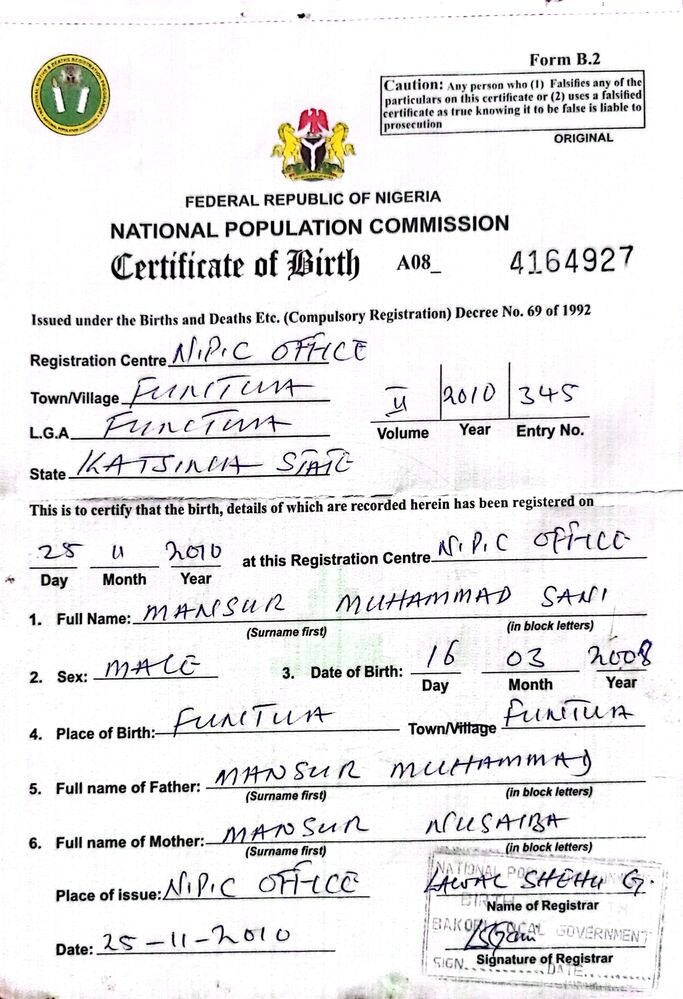 Form B.2
Caution: Any person who (1) Falsifies any of the
particulars on this certificate or (2) uses a falsified
certificate as true knowing it to be false is liable to
prosecution
ORIGINAL
FEDERAL REPUBLIC OF NIGERIA
NATIONAL POPULATION COMMISSION
Certificate of Birth A08_ 4164927
Issued under the Births and Deaths Etc. (Compulsory Registration) Decree No. 69 of 1992
Registration Centre N.P.C OFFICE
Town/Village FUNTUA
L.G.A FUNTUA
II 2010 345
Volume Year Entry No.
State KATSINA STATE
This is to certify that the birth, details of which are recorded herein has been registered on
25 11 2010 at this Registration Centre N.P.C OFFICE
Day Month Year
1. Full Name: MANSUR MUHAMMAD SANI
(Surname first) (in block letters)
2. Sex: MALE 3. Date of Birth: 16 03 2008
Day Month Year
4. Place of Birth: FUNTUA Town/Village FUNTUA
5. Full name of Father: MANSUR MUHAMMAD
(Surname first) (in block letters)
6. Full name of Mother: MANSUR NUSAIBA
(Surname first) (in block letters)
Place of issue: N.P.C OFFICE LAWAL SHEHU G.
Name of Registrar
Date: 25-11-2010
Signature of Registrar
NATIONAL
BIRTH
LOCAL GOVERNMENT
SIGN. DATE